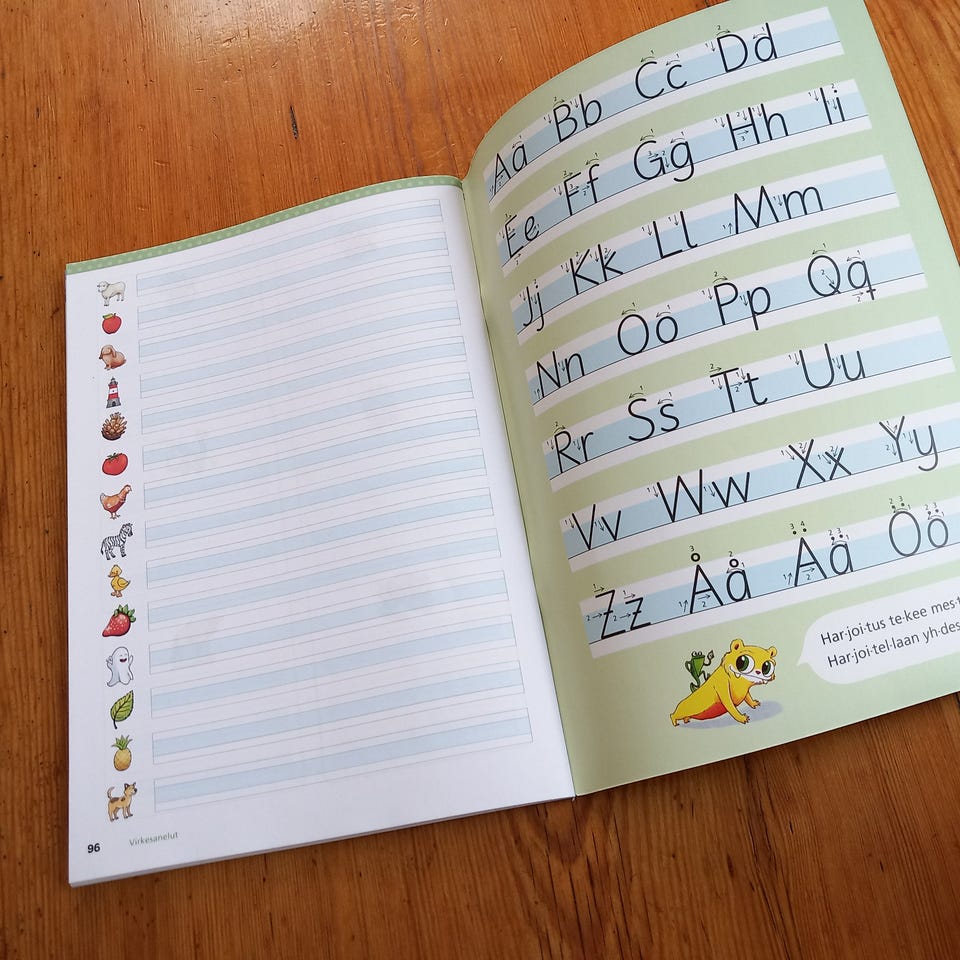 96
Virkesanelut
Aa Bb Cc Dd
Ee Ff Gg Hh Ii
Jj Kk Ll Mm
Nn Oo Pp Qq
Rr Ss Tt Uu
Vv Ww Xx Yy
Zz Åå Ää Öö
Har·joi·tus te·kee
Har·joi·tel·laan